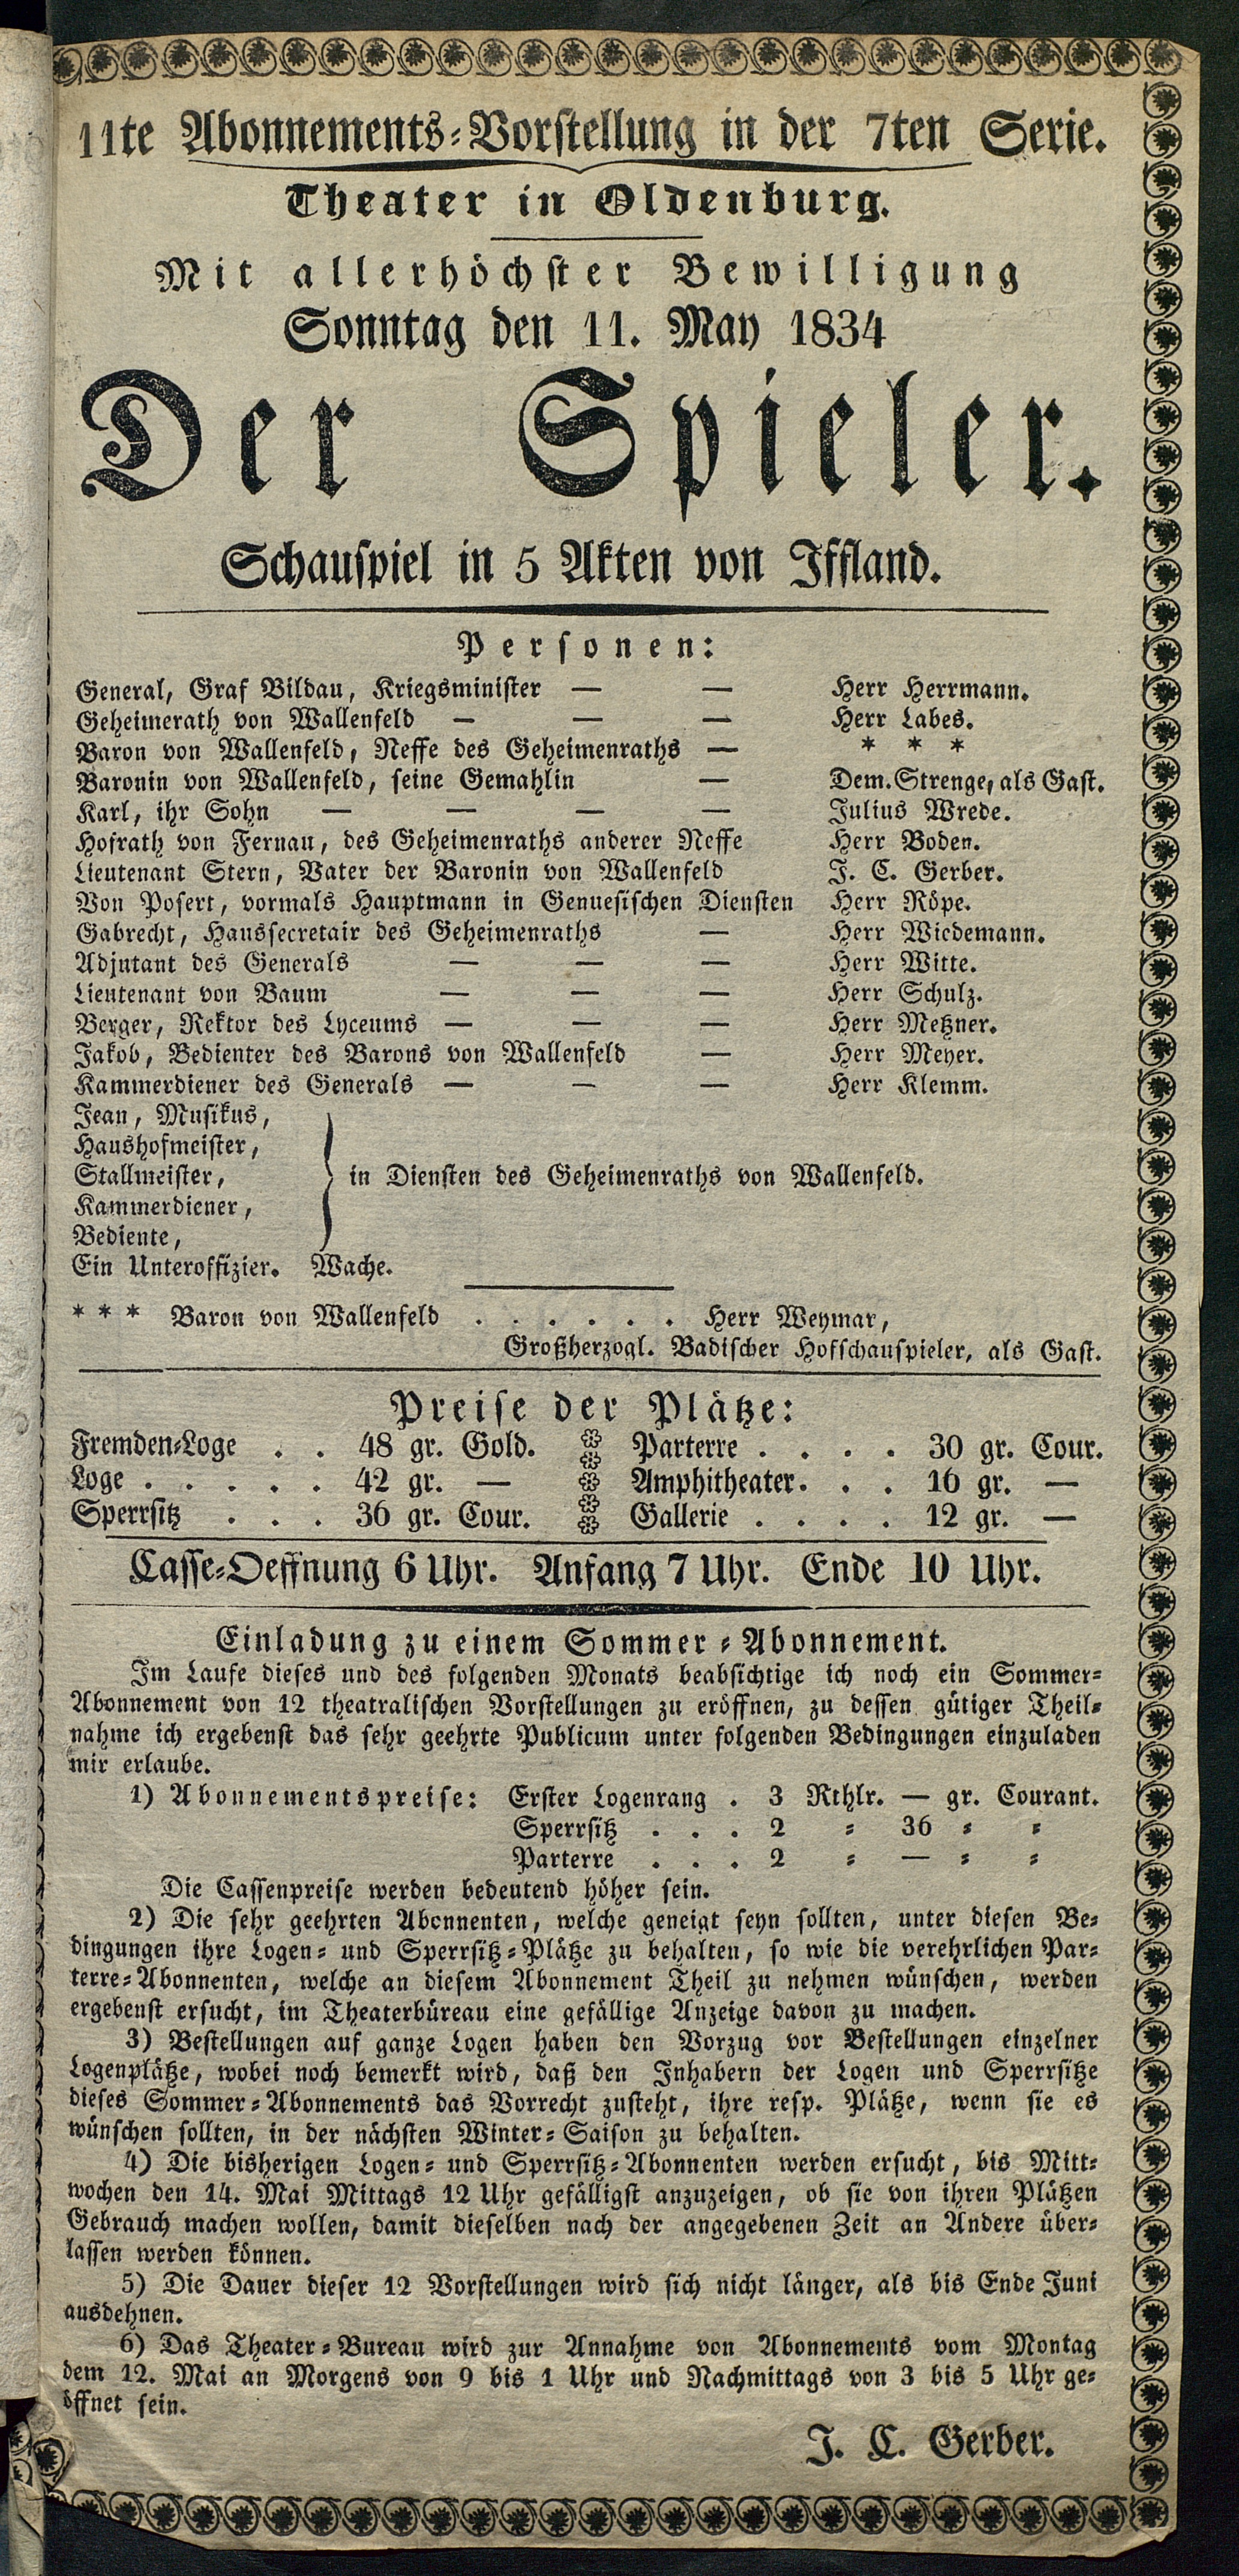 11te Abonnements-Vorstellung in der 7ten Serie.
Theater in Oldenburg.
Mit allerhöchster Bewilligung
Sonntag den 11. May 1834
Der Spieler.
Schauspiel in 5 Akten von Iffland.
Personen:
General, Graf Bildau, Kriegsminister — — Herr Herrmann.
Geheimerath von Wallenfeld — — — Herr Labes.
Baron von Wallenfeld, Neffe des Geheimenraths — * * *
Baronin von Wallenfeld, seine Gemahlin — Dem. Strenge, als Gast.
Karl, ihr Sohn — — — — Julius Wrede.
Hofrath von Fernau, des Geheimenraths anderer Neffe Herr Boden.
Lieutenant Stern, Vater der Baronin von Wallenfeld J. C. Gerber.
Von Posert, vormals Hauptmann in Genuesischen Diensten Herr Röpe.
Gabrecht, Haussecretair des Geheimenraths — Herr Wiedemann.
Adjutant des Generals — — — Herr Witte.
Lieutenant von Baum — — — Herr Schulz.
Berger, Rektor des Lyceums — — — Herr Metzner.
Jakob, Bedienter des Barons von Wallenfeld — Herr Meyer.
Kammerdiener des Generals — — — Herr Klemm.
Jean, Musikus,
Haushofmeister,
Stallmeister, in Diensten des Geheimenraths von Wallenfeld.
Kammerdiener,
Bediente,
Ein Unteroffizier. Wache.
* * * Baron von Wallenfeld . . . . . . Herr Weymar,
Großherzogl. Badischer Hofschauspieler, als Gast.
Preise der Plätze:
Fremden-Loge . . 48 gr. Gold. Parterre . . . . 30 gr. Cour.
Loge . . . . . 42 gr. — Amphitheater. . . 16 gr. —
Sperrsitz . . . 36 gr. Cour. Gallerie . . . . 12 gr. —
Casse-Oeffnung 6 Uhr. Anfang 7 Uhr. Ende 10 Uhr.
Einladung zu einem Sommer-Abonnement.
Im Laufe dieses und des folgenden Monats beabsichtige ich noch ein Sommer-
Abonnement von 12 theatralischen Vorstellungen zu eröffnen, zu dessen gütiger Theil-
nahme ich ergebenst das sehr geehrte Publicum unter folgenden Bedingungen einzuladen
mir erlaube.
1) Abonnementspreise: Erster Logenrang . 3 Rthlr. — gr. Courant.
Sperrsitz . . . 2 = 36 = =
Parterre . . . 2 = — = =
Die Cassenpreise werden bedeutend höher sein.
2) Die sehr geehrten Abonnenten, welche geneigt seyn sollten, unter diesen Be-
dingungen ihre Logen- und Sperrsitz-Plätze zu behalten, so wie die verehrlichen Par-
terre-Abonnenten, welche an diesem Abonnement Theil zu nehmen wünschen, werden
ergebenst ersucht, im Theaterbüreau eine gefällige Anzeige davon zu machen.
3) Bestellungen auf ganze Logen haben den Vorzug vor Bestellungen einzelner
Logenplätze, wobei noch bemerkt wird, daß den Inhabern der Logen und Sperrsitze
dieses Sommer-Abonnements das Vorrecht zusteht, ihre resp. Plätze, wenn sie es
wünschen sollten, in der nächsten Winter-Saison zu behalten.
4) Die bisherigen Logen- und Sperrsitz-Abonnenten werden ersucht, bis Mitt-
wochen den 14. Mai Mittags 12 Uhr gefälligst anzuzeigen, ob sie von ihren Plätzen
Gebrauch machen wollen, damit dieselben nach der angegebenen Zeit an Andere über-
lassen werden können.
5) Die Dauer dieser 12 Vorstellungen wird sich nicht länger, als bis Ende Juni
ausdehnen.
6) Das Theater-Bureau wird zur Annahme von Abonnements vom Montag
dem 12. Mai an Morgens von 9 bis 1 Uhr und Nachmittags von 3 bis 5 Uhr ge-
öffnet sein.
J. C. Gerber.